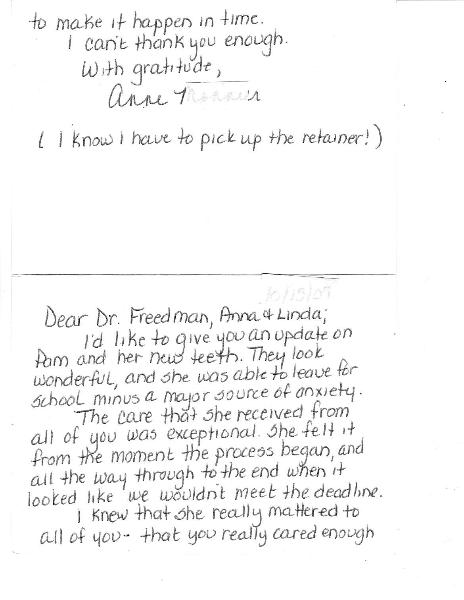 to make it happen in time.
I can't thank you enough.
With gratitude,
Anne
( I know I have to pick up the retainer!)
Dear Dr. Freedman, Anna & Linda;
I'd like to give you an update on
Pam and her new teeth. They look
wonderful, and she was able to leave for
school minus a major source of anxiety.
The care that she received from
all of you was exceptional. She felt it
from the moment the process began, and
all the way through to the end when it
looked like we wouldn't meet the deadline.
I knew that she really mattered to
all of you - that you really cared enough